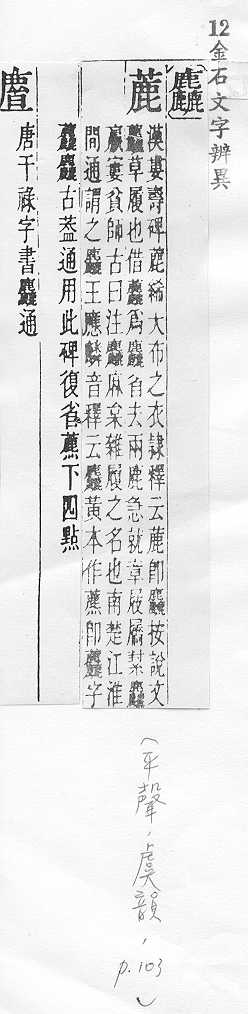 12金石文字辨異
麤
蔍
漢婁壽碑蔍絺大布之衣隸釋云蔍即麤按說文
草履也借爲麤省去兩鹿急就章屐屩麤
羸窶貧師古曰注麤麻枲雜履之名也南楚江淮
間通謂之麤王應麟音釋云麤黃本作藨即字
麤古蓋通用此碑復省藨下四點
唐干祿字書麤通
(平聲,虞韻,p.103)